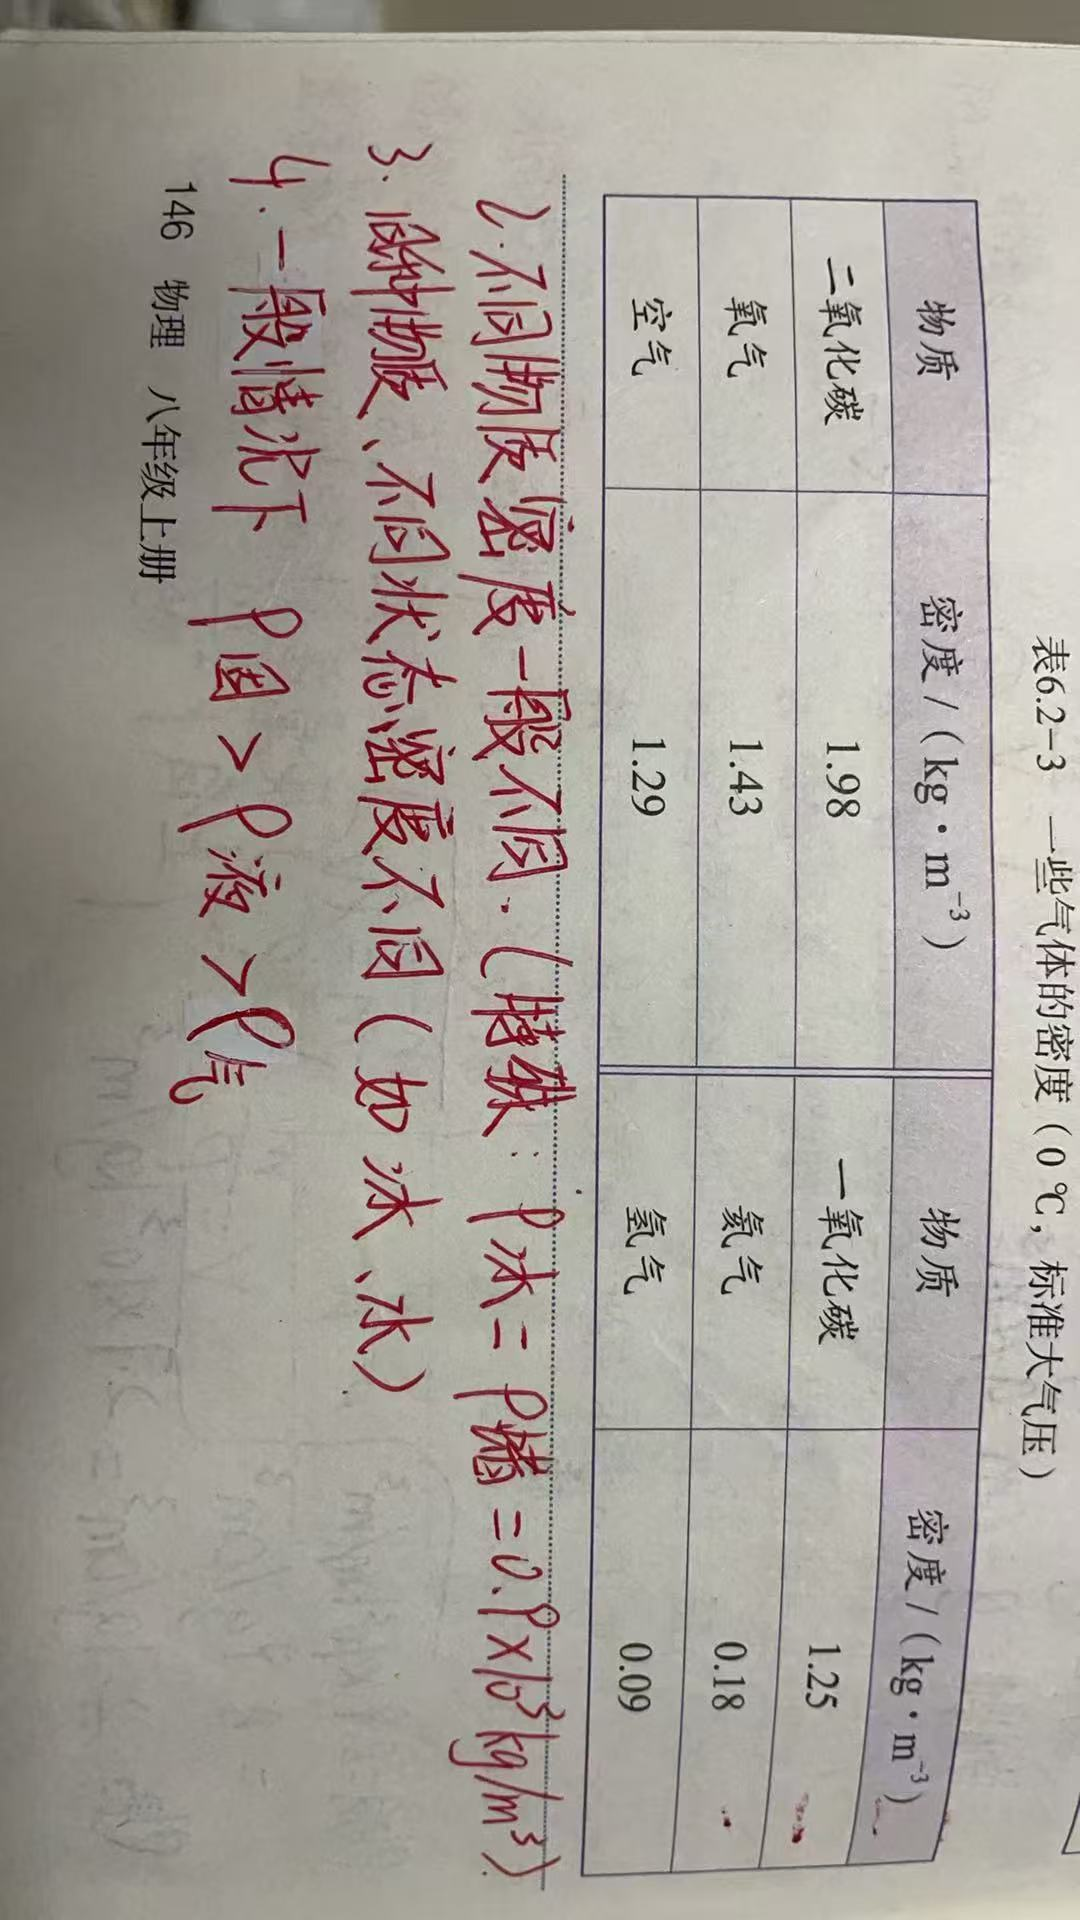 表6.2-3 一些气体的密度（0 ℃，标准大气压）
物质 密度/(kg·m⁻³) 物质 密度/(kg·m⁻³)
二氧化碳 1.98 一氧化碳 1.25
氧气 1.43 氦气 0.18
空气 1.29 氢气 0.09
2.不同物质密度一般不同.(特殊: ρ冰=ρ蜡=0.9×10³kg/m³)
3.同种物质、不同状态密度不同(如冰、水)
4.一般情况下 ρ固>ρ液>ρ气
146 物理 八年级上册